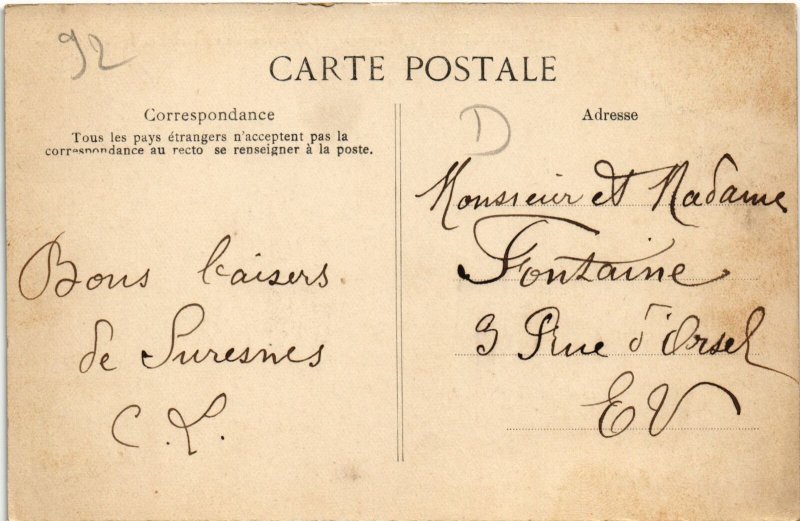 92
CARTE POSTALE
Correspondance
Tous les pays étrangers n'acceptent pas la
correspondance au recto se renseigner à la poste.
Bons baisers
de Suresnes
C. L.
D
Adresse
Monsieur et Madame
Fontaine
3 Rue d'Orsel
EV